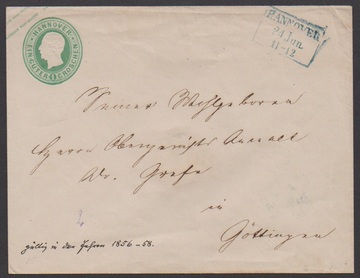 HANNOVER
EIN GUTER GROSCHEN
HANNOVER
24 Jan.
11-12
Seiner Wohlgeboren
Herrn Obergerichts Anwalt
Dr. Grefe
in
Göttingen
gültig in den Jahren 1856-58.